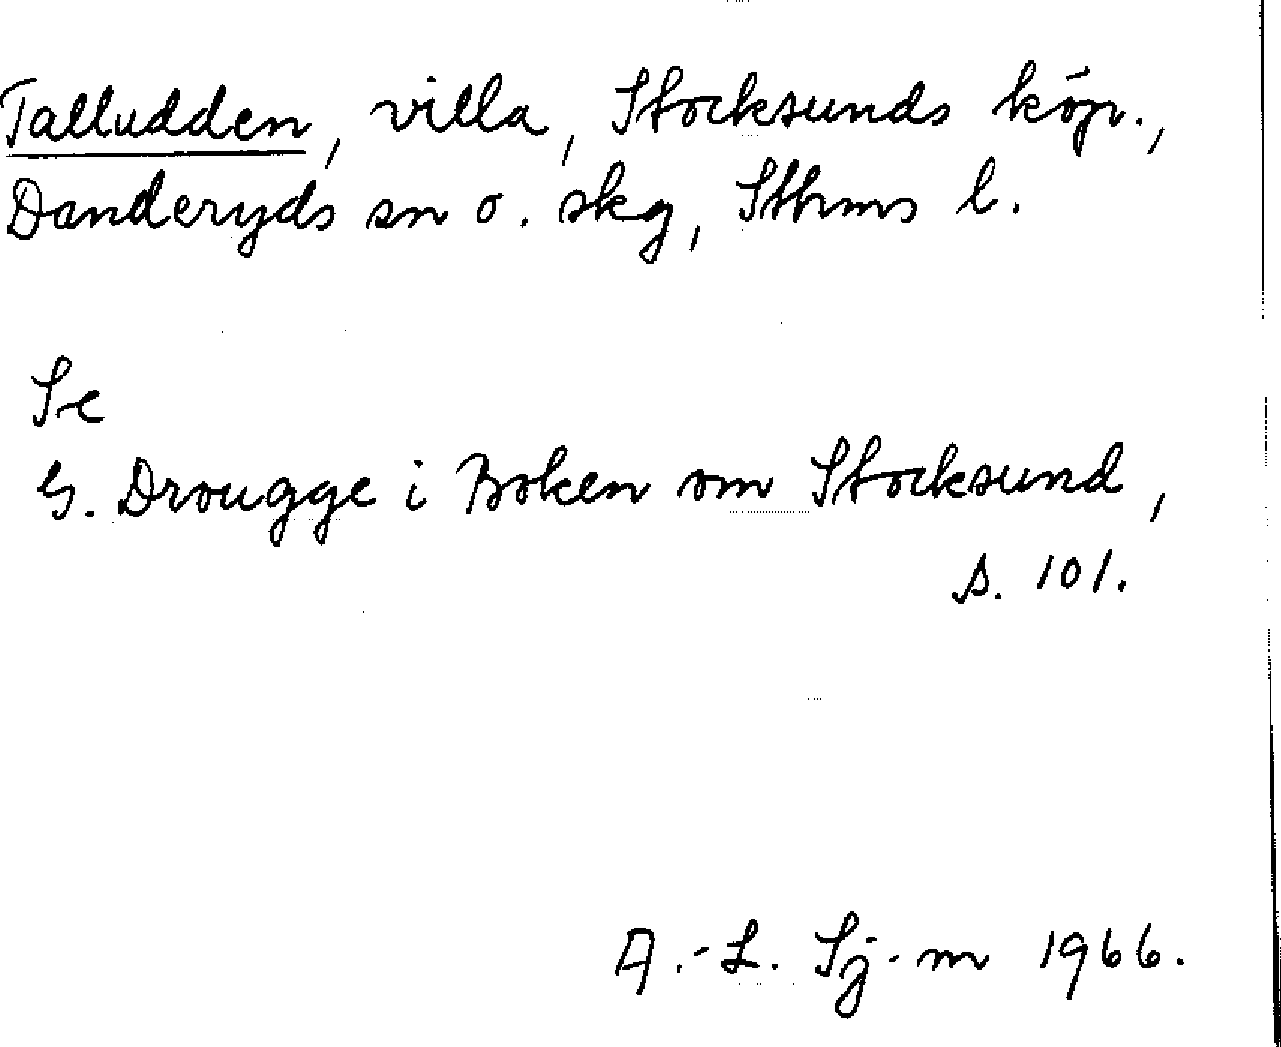 Talludden, villa, Stocksunds köp.,
Danderyds sn o. skg, Sthms l.
Se
G. Drougge i Boken om Stocksund,
s. 101.
A.-L. Sj-m 1966.